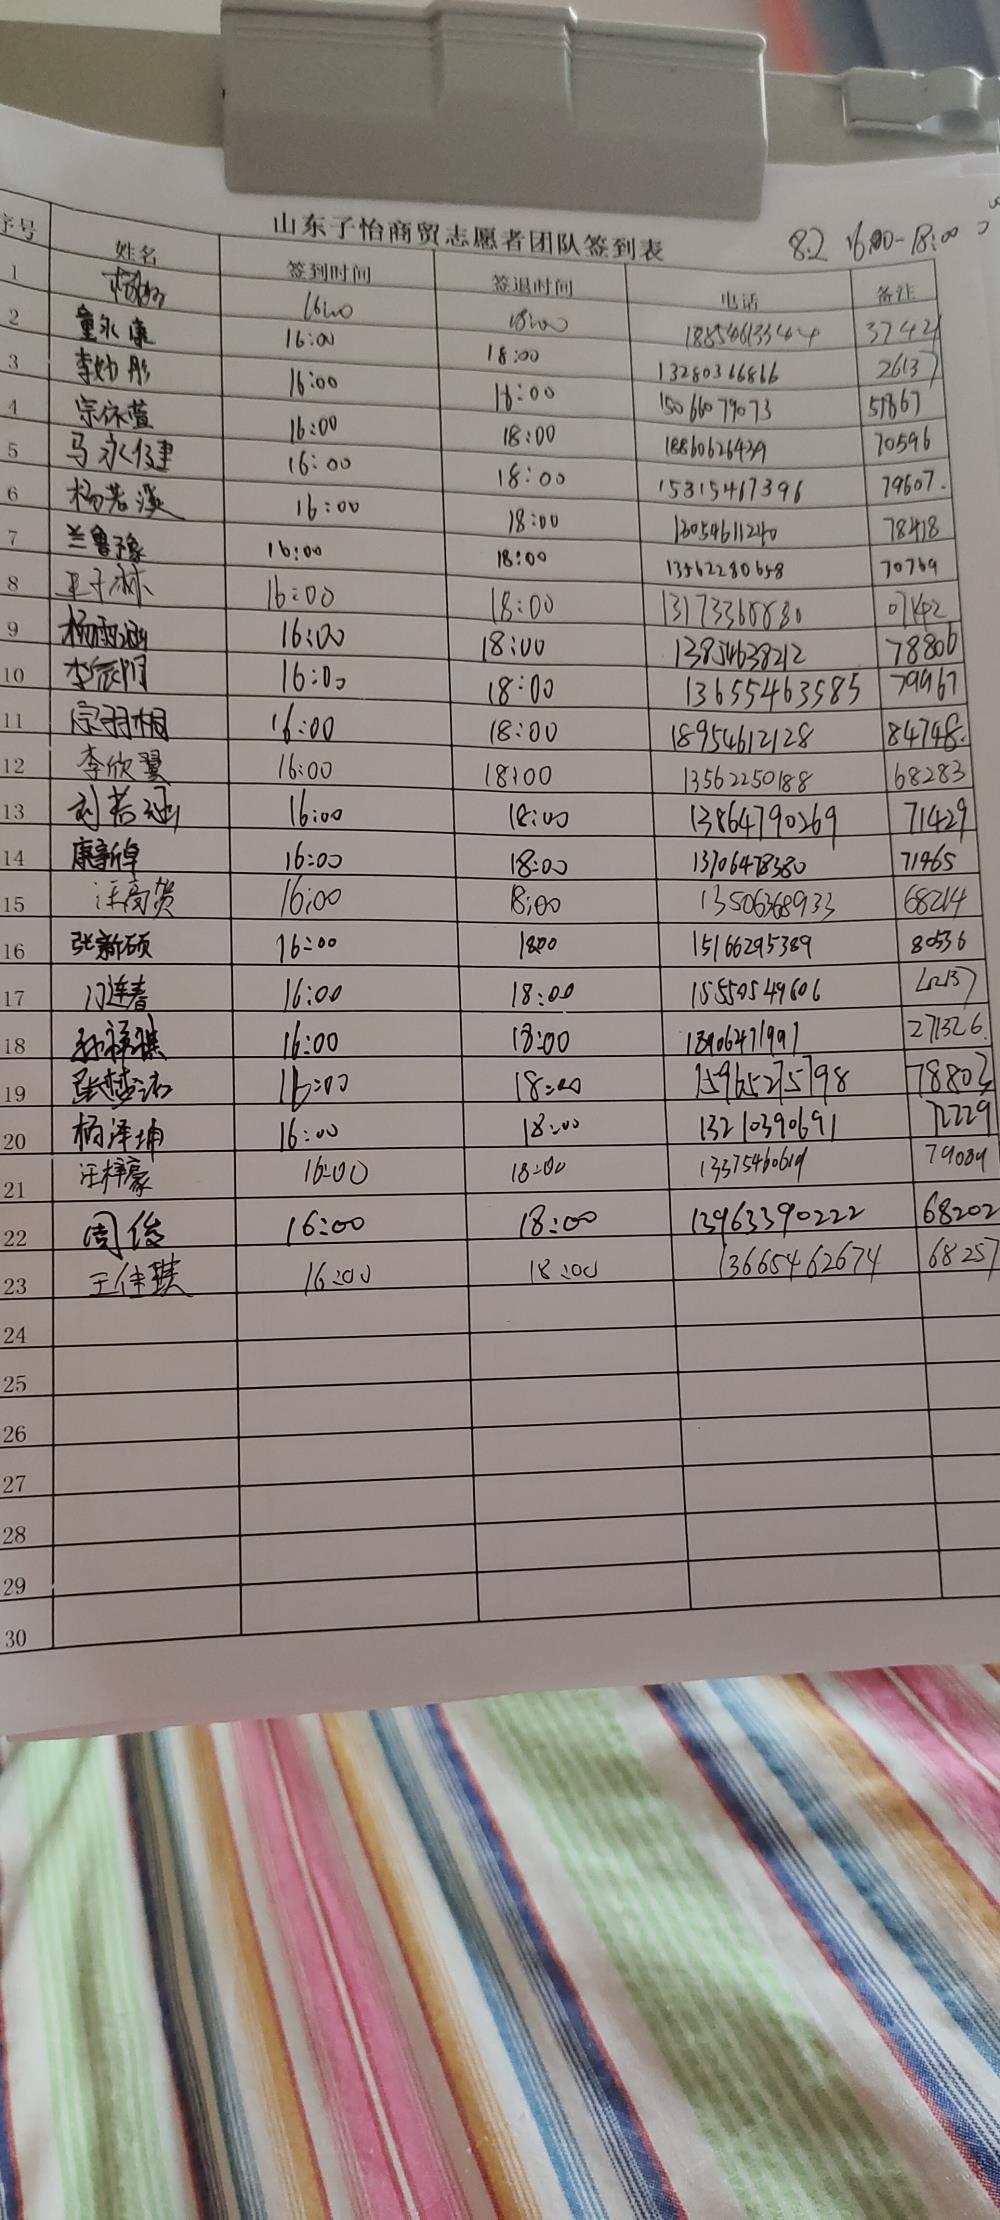 山东子怡商贸志愿者团队签到表 8.2 16:00-18:00
序号 姓名 签到时间 签退时间 电话 备注
1 16:00 18:00 3742
2 童永康 16:00 18:00 13280366866 26137
3 李灿彤 16:00 18:00 15066079073 57867
4 宗依萱 16:00 18:00 18860626439 70596
5 马永健 16:00 18:00 15315467396 79607.
6 杨若溪 16:00 18:00 13054611240 78418
7 兰鲁豫 16:00 18:00 13562280658 70769
8 16:00 18:00 13173368880 07142
9 杨雨涵 16:00 18:00 13854638212 78806
10 李辰阳 16:00 18:00 13655463585 79967
11 宗羽桐 16:00 18:00 18954612128 84748.
12 李欣翼 16:00 18:00 13562250188 68283
13 刘若涵 16:00 18:00 13864790269 71429
14 康新卓 16:00 18:00 13706478380 71965
15 汪高贺 16:00 18:00 13506368933 68214
16 张新硕 16:00 1800 15166295389 80536
17 门连春 16:00 18:00 15550549606
18 孙祥祺 16:00 18:00 18906471991 271326
19 张梦洁 16:00 18:00 15965275798 78803
20 杨泽坤 16:00 18:00 13210390691 72229
21 汪梓豪 16:00 18:00 79089
22 周俊 16:00 18:00 13963390222 68202
23 王佳琪 16:00 18:00 13665462674 68257
24
25
26
27
28
29
30